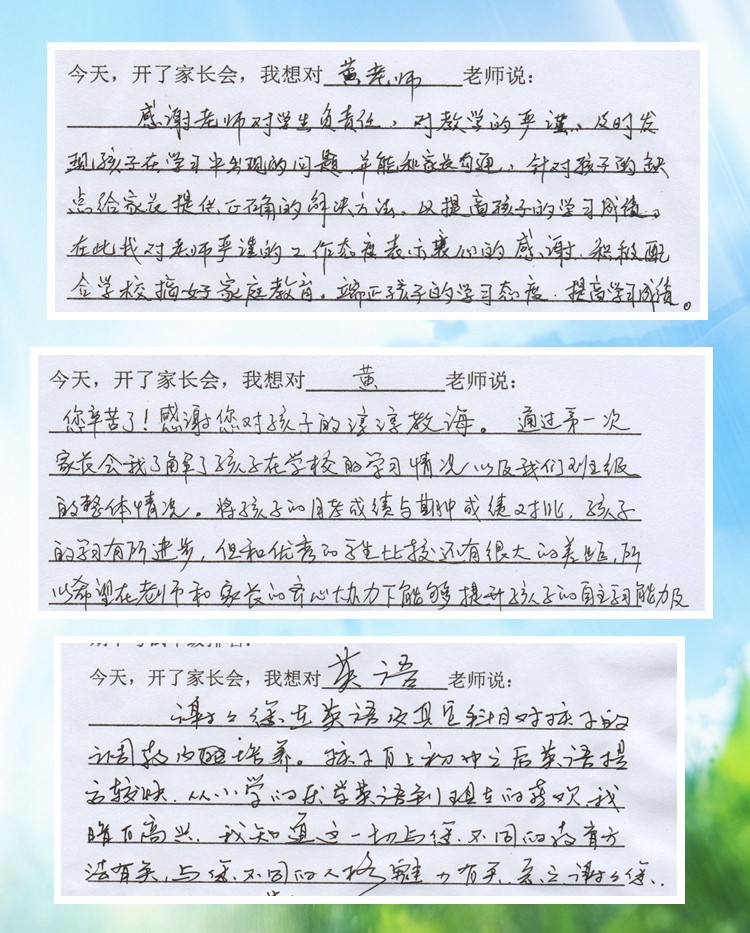 今天，开了家长会，我想对 黄老师 老师说：
感谢老师对学生负责任，对教学的严谨、及时发
现孩子在学习中出现的问题，并能和家长沟通，针对孩子的缺
点给家长提供正确的解决方法。以提高孩子的学习成绩。
在此我对老师严谨的工作态度表示衷心的感谢，积极配
合学校搞好家庭教育。端正孩子的学习态度，提高学习成绩。
今天，开了家长会，我想对 黄 老师说：
您辛苦了！感谢您对孩子的谆谆教诲。通过第一次
家长会我了解了孩子在学校的学习情况以及我们班级
的整体情况。将孩子的月考成绩与期中成绩对比，孩子
的学习有所进步，但和优秀的学生比较还有很大的差距，所
以希望在老师和家长的齐心协力下能够提升孩子的自主学习能力及
今天，开了家长会，我想对 英语 老师说：
谢谢您在英语及其它科目对孩子的
培养。孩子自上初中之后英语提
高较快，从小学的厌学英语到现在的喜欢，我
高兴，我知道这一切与您不同的教育方
法有关，与您不同的人格魅力有关，谢谢您，